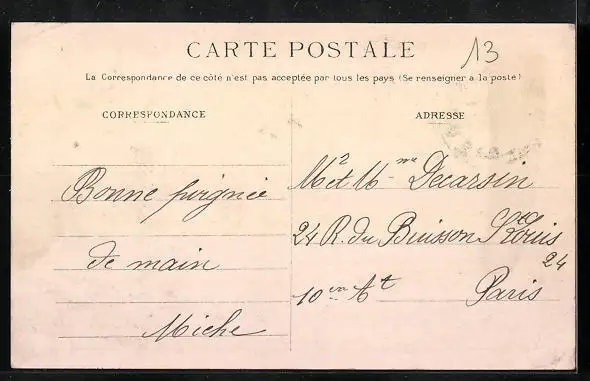 CARTE POSTALE
13
La Correspondance de ce côté n'est pas acceptée par tous les pays (Se renseigner à la poste)
CORRESPONDANCE
ADRESSE
Bonne poignée
de main
Miche
Mr et Mme Decarsin
24 R. du Buisson St Louis
24
10em At
Paris